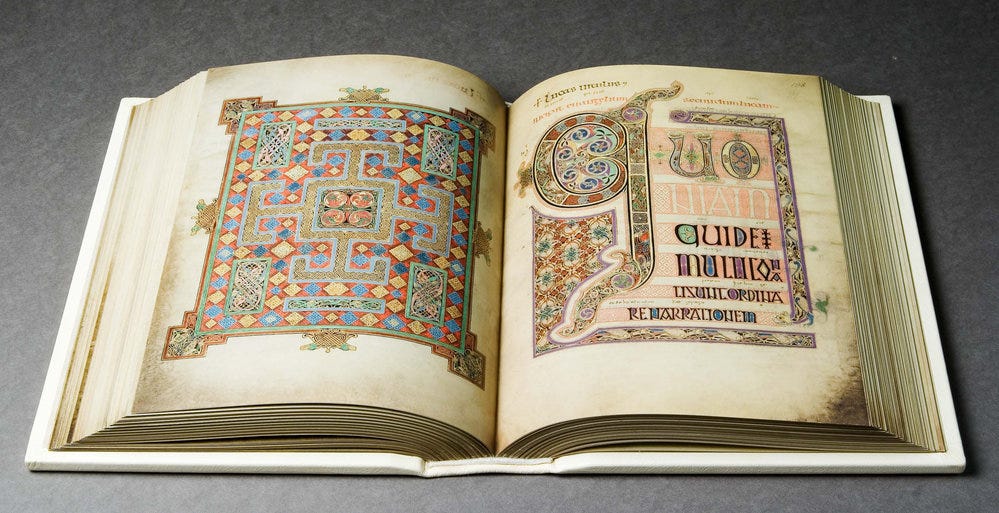 + Lucas uitulus
Incipit euangelium secundum lucam
QUO
NIAM
QUIDEM
MULTI CONA
TI SUNT ORDINA
RE NARRATIONEM